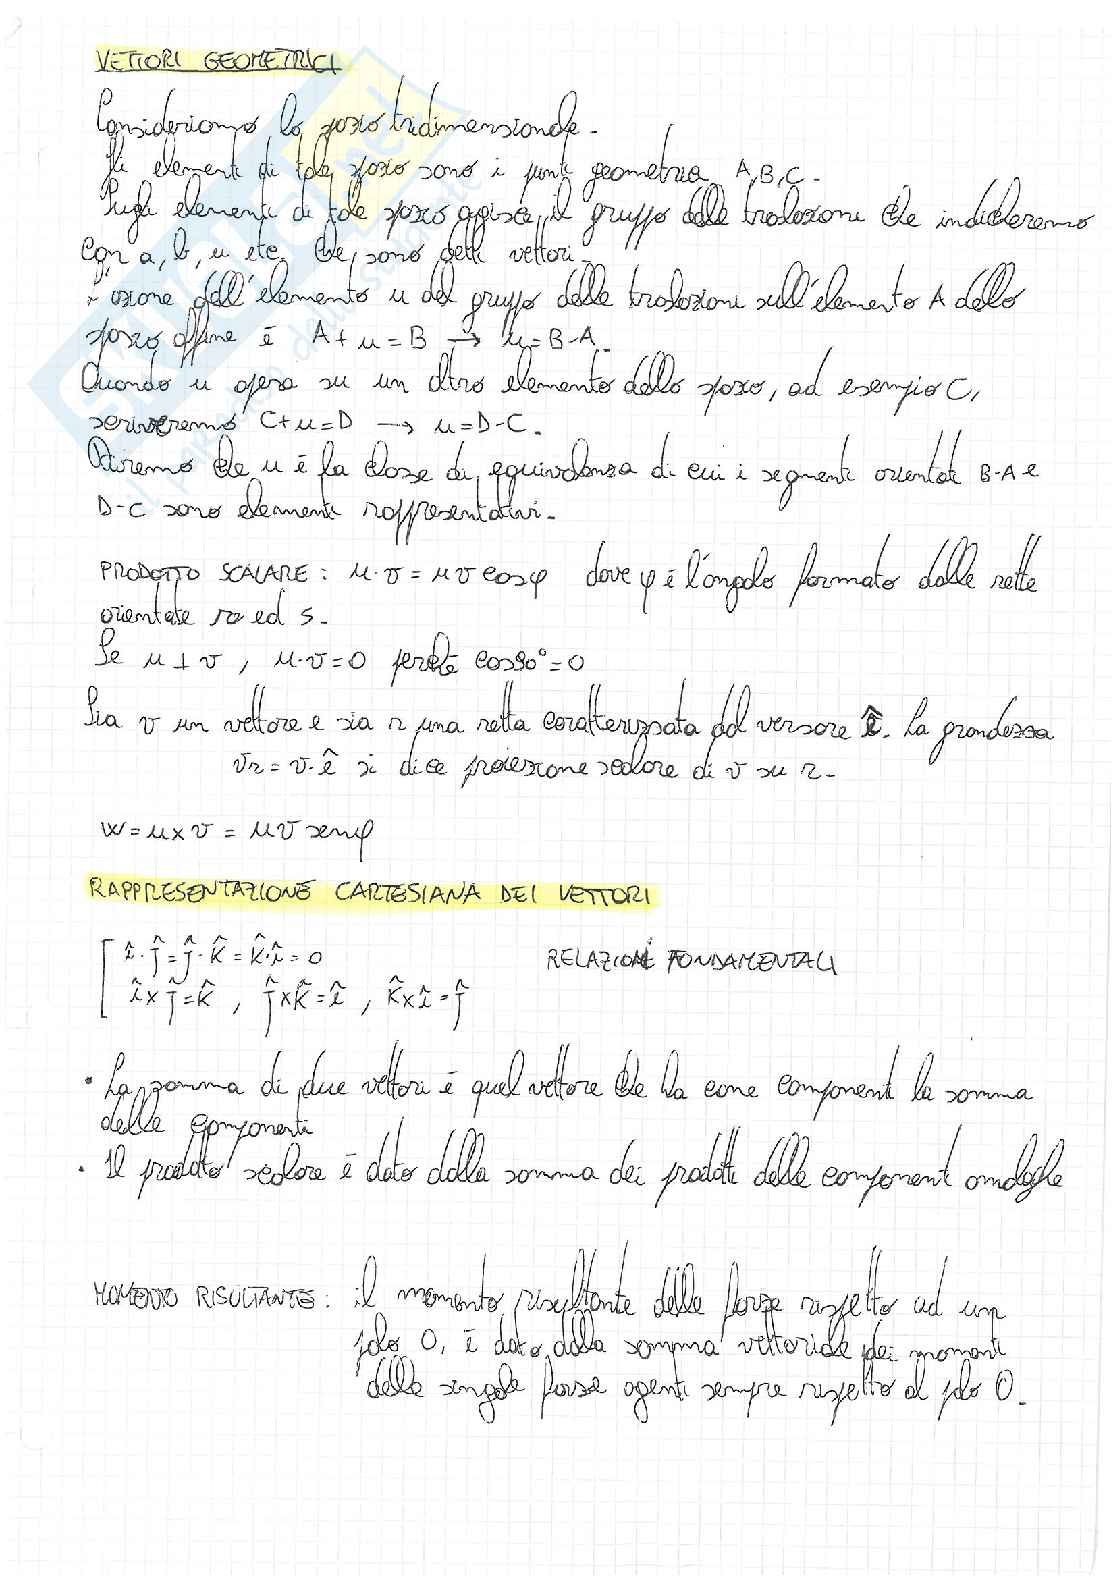 VETTORI GEOMETRICI
Consideriamo lo spazio tridimensionale.
Gli elementi di tale spazio sono i punti geometrici A,B,C.
Sugli elementi di tale spazio agisce il gruppo delle traslazioni che indicheremo
con a, b, u etc. che sono detti vettori.
L'azione dell'elemento u del gruppo delle traslazioni sull'elemento A dello
spazio affine è A+u=B → u=B-A.
Quando u opera su un altro elemento dello spazio, ad esempio C,
scriveremo C+u=D → u=D-C.
Diremo che u è la classe di equivalenza di cui i segmenti orientati B-A e
D-C sono elementi rappresentativi.
PRODOTTO SCALARE: u·v = uv cosφ dove φ è l'angolo formato dalle rette
orientate r ed s.
Se u⊥v, u·v=0 perchè cos90°=0
Sia v un vettore e sia r una retta caratterizzata dal versore ê. La grandezza
vr = v·ê si dice proiezione scalare di v su r.
w = u×v = uv senφ
RAPPRESENTAZIONE CARTESIANA DEI VETTORI
î·ĵ=ĵ·k̂=k̂·î=0 RELAZIONI FONDAMENTALI
î×ĵ=k̂, ĵ×k̂=î, k̂×î=ĵ
• La somma di due vettori è quel vettore che ha come componenti la somma
delle componenti
• Il prodotto scalare è dato dalla somma dei prodotti delle componenti omologhe
MOMENTO RISULTANTE: il momento risultante delle forze rispetto ad un
polo O, è dato dalla somma vettoriale dei momenti
delle singole forze agenti sempre rispetto al polo O.